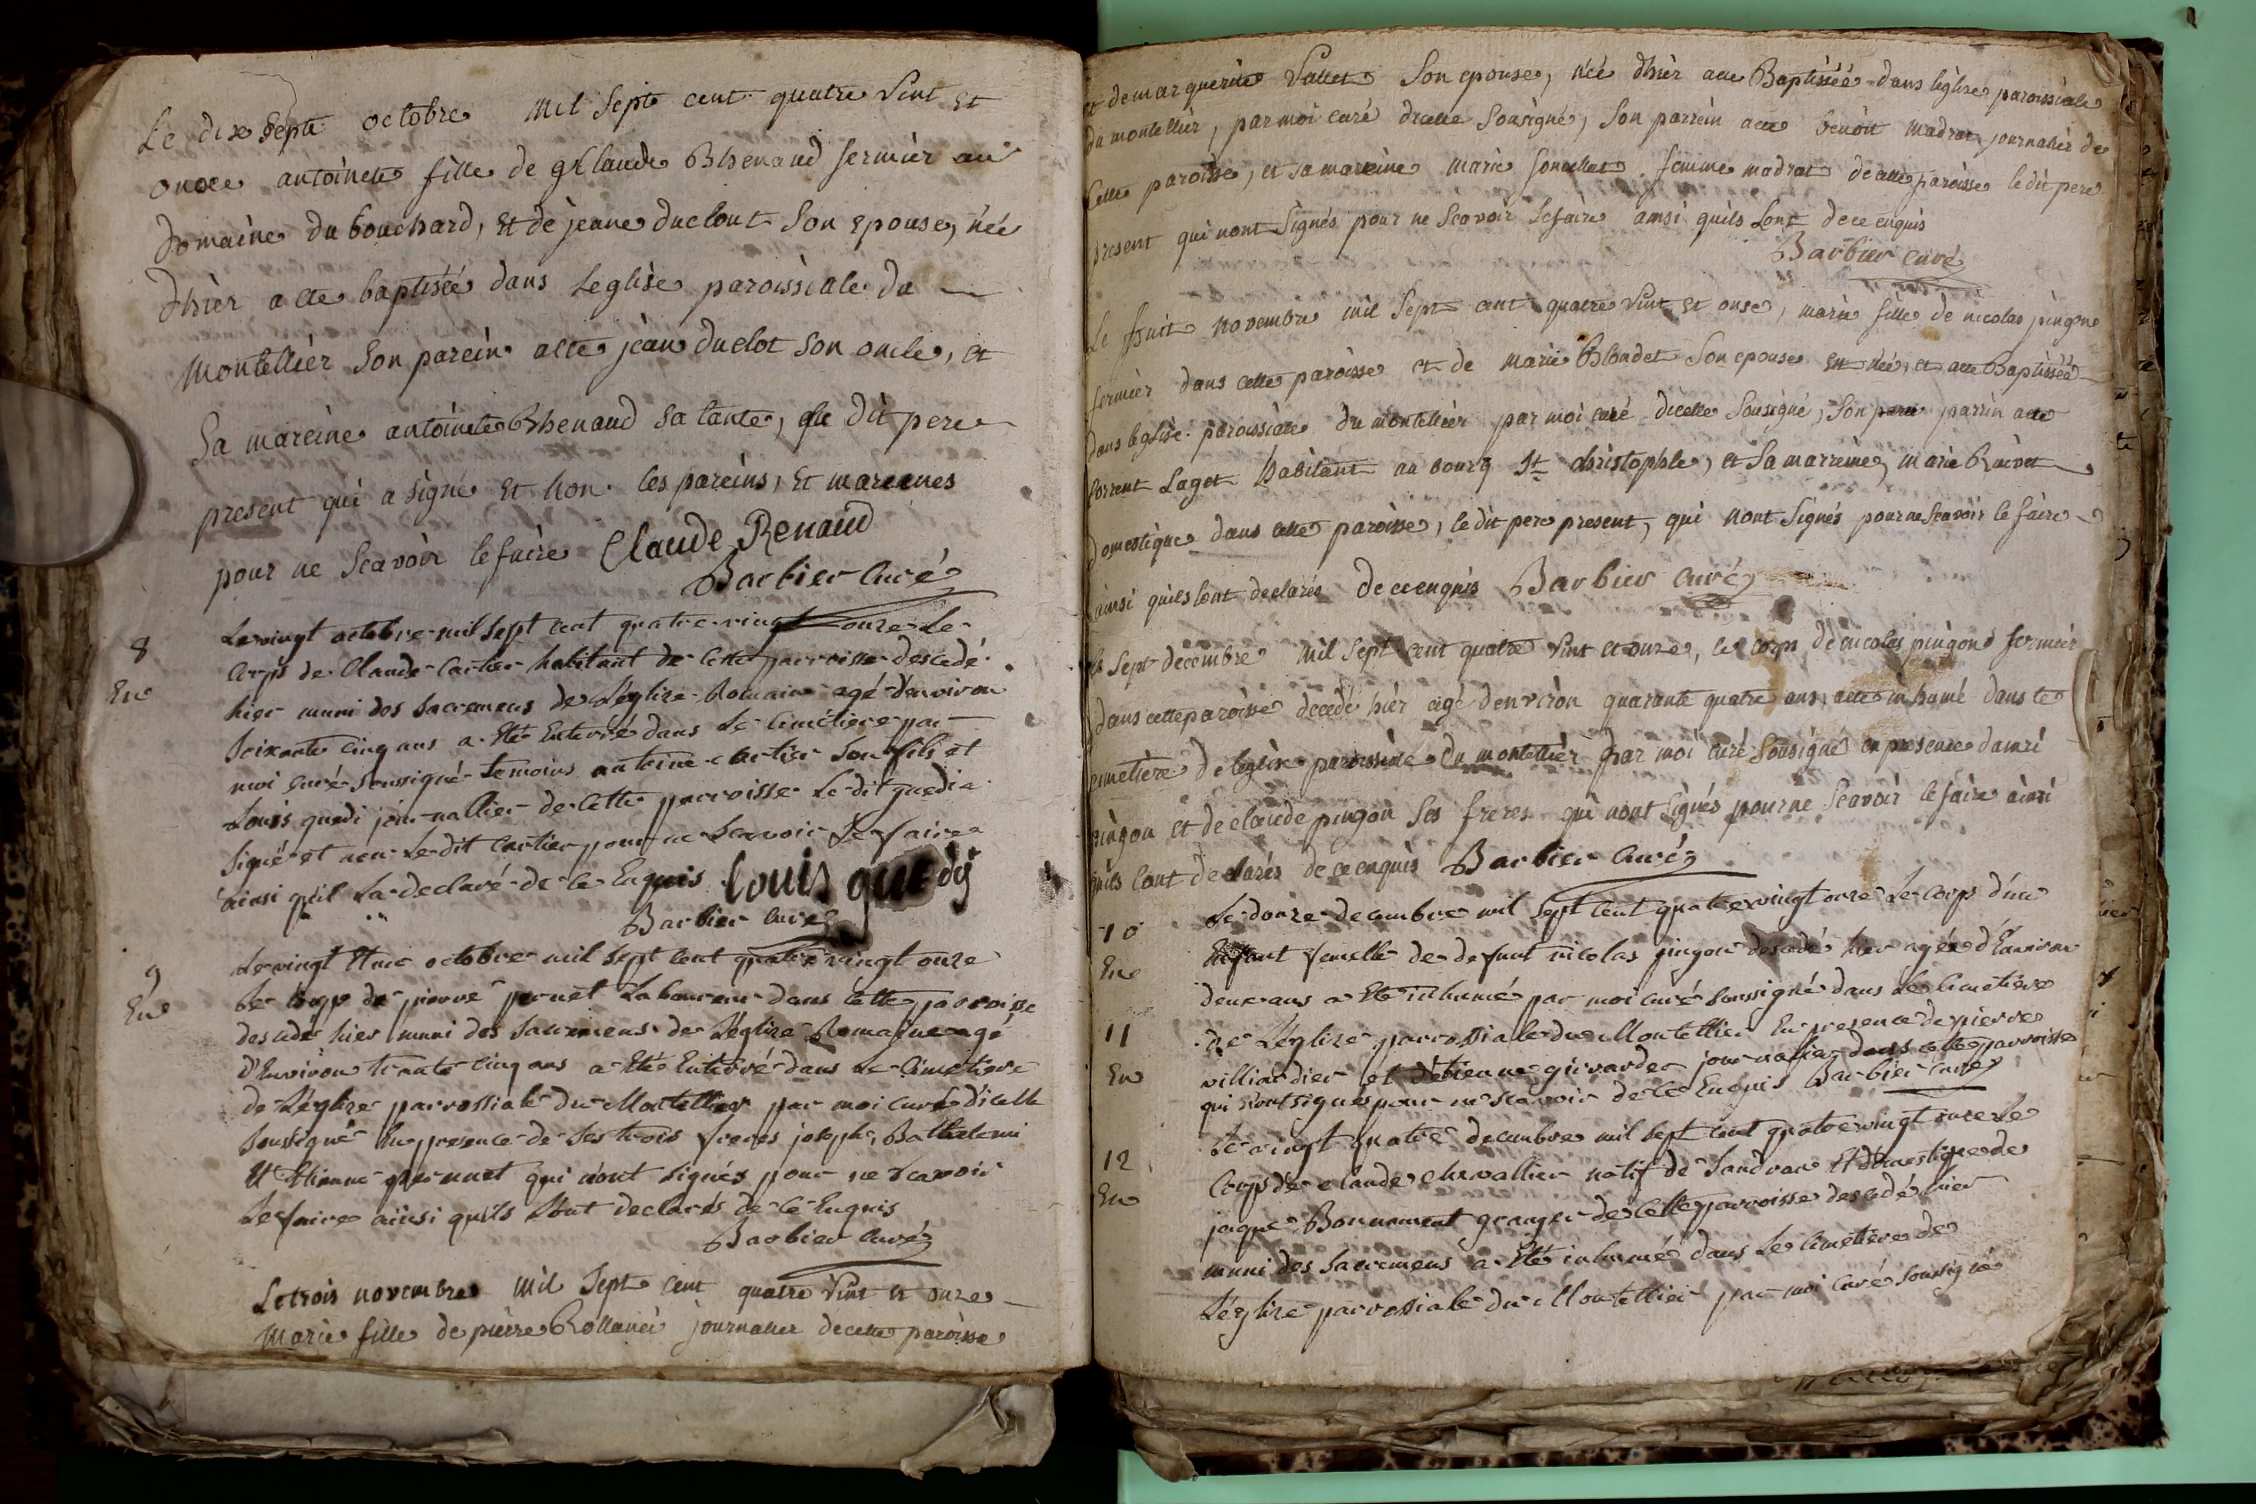 Le dix Septe octobre Mil Septe cent quatre Vint et
onxe antoinete fille de Claude Rhenaud fermier au
Domaine du bouchard, et de jeane duclout Son epouse, née
Dhier a ete baptisée dans Leglise paroissiale du
Montellier Son parein a ete jean duclot Son oncle, et
Sa mareine antoinete Rhenaud Sa tante, le dit pere
present qui a signé et non les pareins, et mareines
pour ne Scavoir le faire Claude Renaud
Barbier Curé
8
En
Le vingt octobre mil Sept cent quatre vingt onze Le
Corps de Claude Cartier habitant de Cette parroisse descedé
hier muni des Sacremens de Léglise Romaine agé denviron
Soixante Cinq ans a Eté Enterré dans Le Cimetiere par
moi Curé Soussigné Temoins antoine Cartier Son fils et
Louis quedi journallier de Cette parroisse Le dit quedi a
Signé et non Le dit Cartier pour ne Scavoir Le faire
ainsi qu'il La declaré de Ce Enquis Louis quedÿ
Barbier Curé
9
En
Le vingt Et un octobre mil Sept Cent quatre vingt onze
Le Corps de pierre pernet Laboureur dans Cette parroisse
descedé hier muni des Sacremens de Léglise Romaine agé
d'Environ trente Cinq ans a Eté Enterré dans Le Cimetiere
de Léglise parrossiale du Montellier par moi Curé d'icelle
Soussigné En presence de Ses trois freres joseph, Bathelemi
Et Etienne pernnet qui n'ont signés pour ne Scavoir
Le faire ainsi quils L'ont declarés de Ce Enquis
Barbier Curé
Le trois novembre Mil Sept cent quatre Vint et onze
Marie fille de pierre Rollanei journalier de cette paroisse
et de marguerite Vallet Son epouse, née dhier a ete Baptisée dans léglise paroissiale
du montellier, par moi curé dicelle Sousigné, Son parrein a ete benoit madrat journalier de
Cette paroisse, et sa mareine marie femme madrat de cette paroisse le dit pere
present qui nont Signés pour ne Scavoir le faire ainsi quils Lont de ce enquis
Barbier Curé
Le huit novembre mil Sept cent quatre Vint et onse, marie fille de nicolas pingon
fermier dans cette paroisse et de marie Blondet Son epouse est née, et a ete Baptisée
dans leglise paroissiale du montellier par moi curé dicelle Sousigné, Son parrin a ete
Laget habitant au bourg St christophle, et Sa marreine, marie
Domestique dans cette paroisse, le dit pere present, qui nont Signés pour ne Scavoir le faire
ainsi quils lont declarés de ce enquis Barbier Curé
Le Sept decembre Mil Sept cent quatre Vint et onze, le corps de nicolas pingon fermier
dans cette paroisse decedé hier agé denviron quarante quatre ans, a ete inhumé dans le
cimetiere de leglise paroissiale du montellier par moi curé Sousigné en presence
pingon et de claude pingon Ses freres qui nont Signés pour ne Scavoir le faire ainsi
quils lont declarés de ce enquis Barbier Curé
10
En
Le douze decembre mil Sept Cent quatre vingt onze Le Corps d'un
Enfant femelle de defunt nicolas pingon descedé hier agée d'Environ
deux ans a Eté inhumé par moi Curé Soussigné dans Le Cimetiere
11
En
de Léglise parrossiale du Montellier En presence de pierre
villiardier et d'etienne girardet journallier dans Cette parroisse
qui n'ont signés pour ne Scavoir de Ce Enquis Barbier Curé
12
En
Le vingt quatre decembre mil Sept Cent quatre vingt onze Le
Corps de Claude Chevallier natif de Sandran Et domestique de
jaque Bonnament granger de Cette parroisse descedé hier
muni des Sacremens a Eté inhumé dans Le Cimetiere de
Léglise parrossiale du Montellier par moi Curé Soussigné